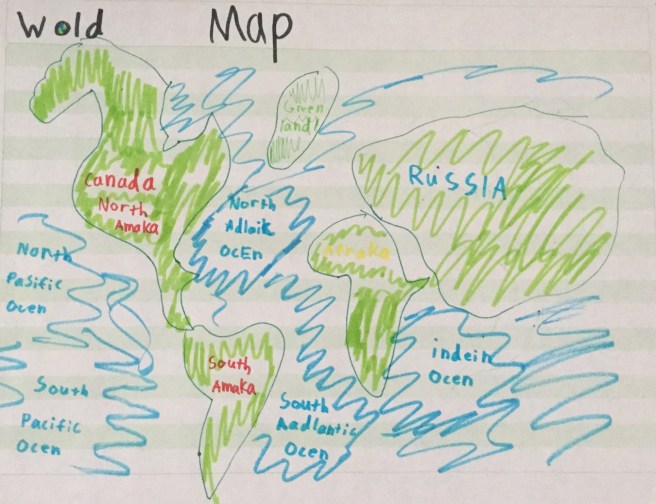 Wold Map
Green
land!
Canada
North
Amaka
RUSSIA
North
Adlaik
OcEn
Afraka
North
Pasific
Ocen
indein
Ocen
South
Amaka
South
Pacific
Ocen
South
Aadlantic
Ocen